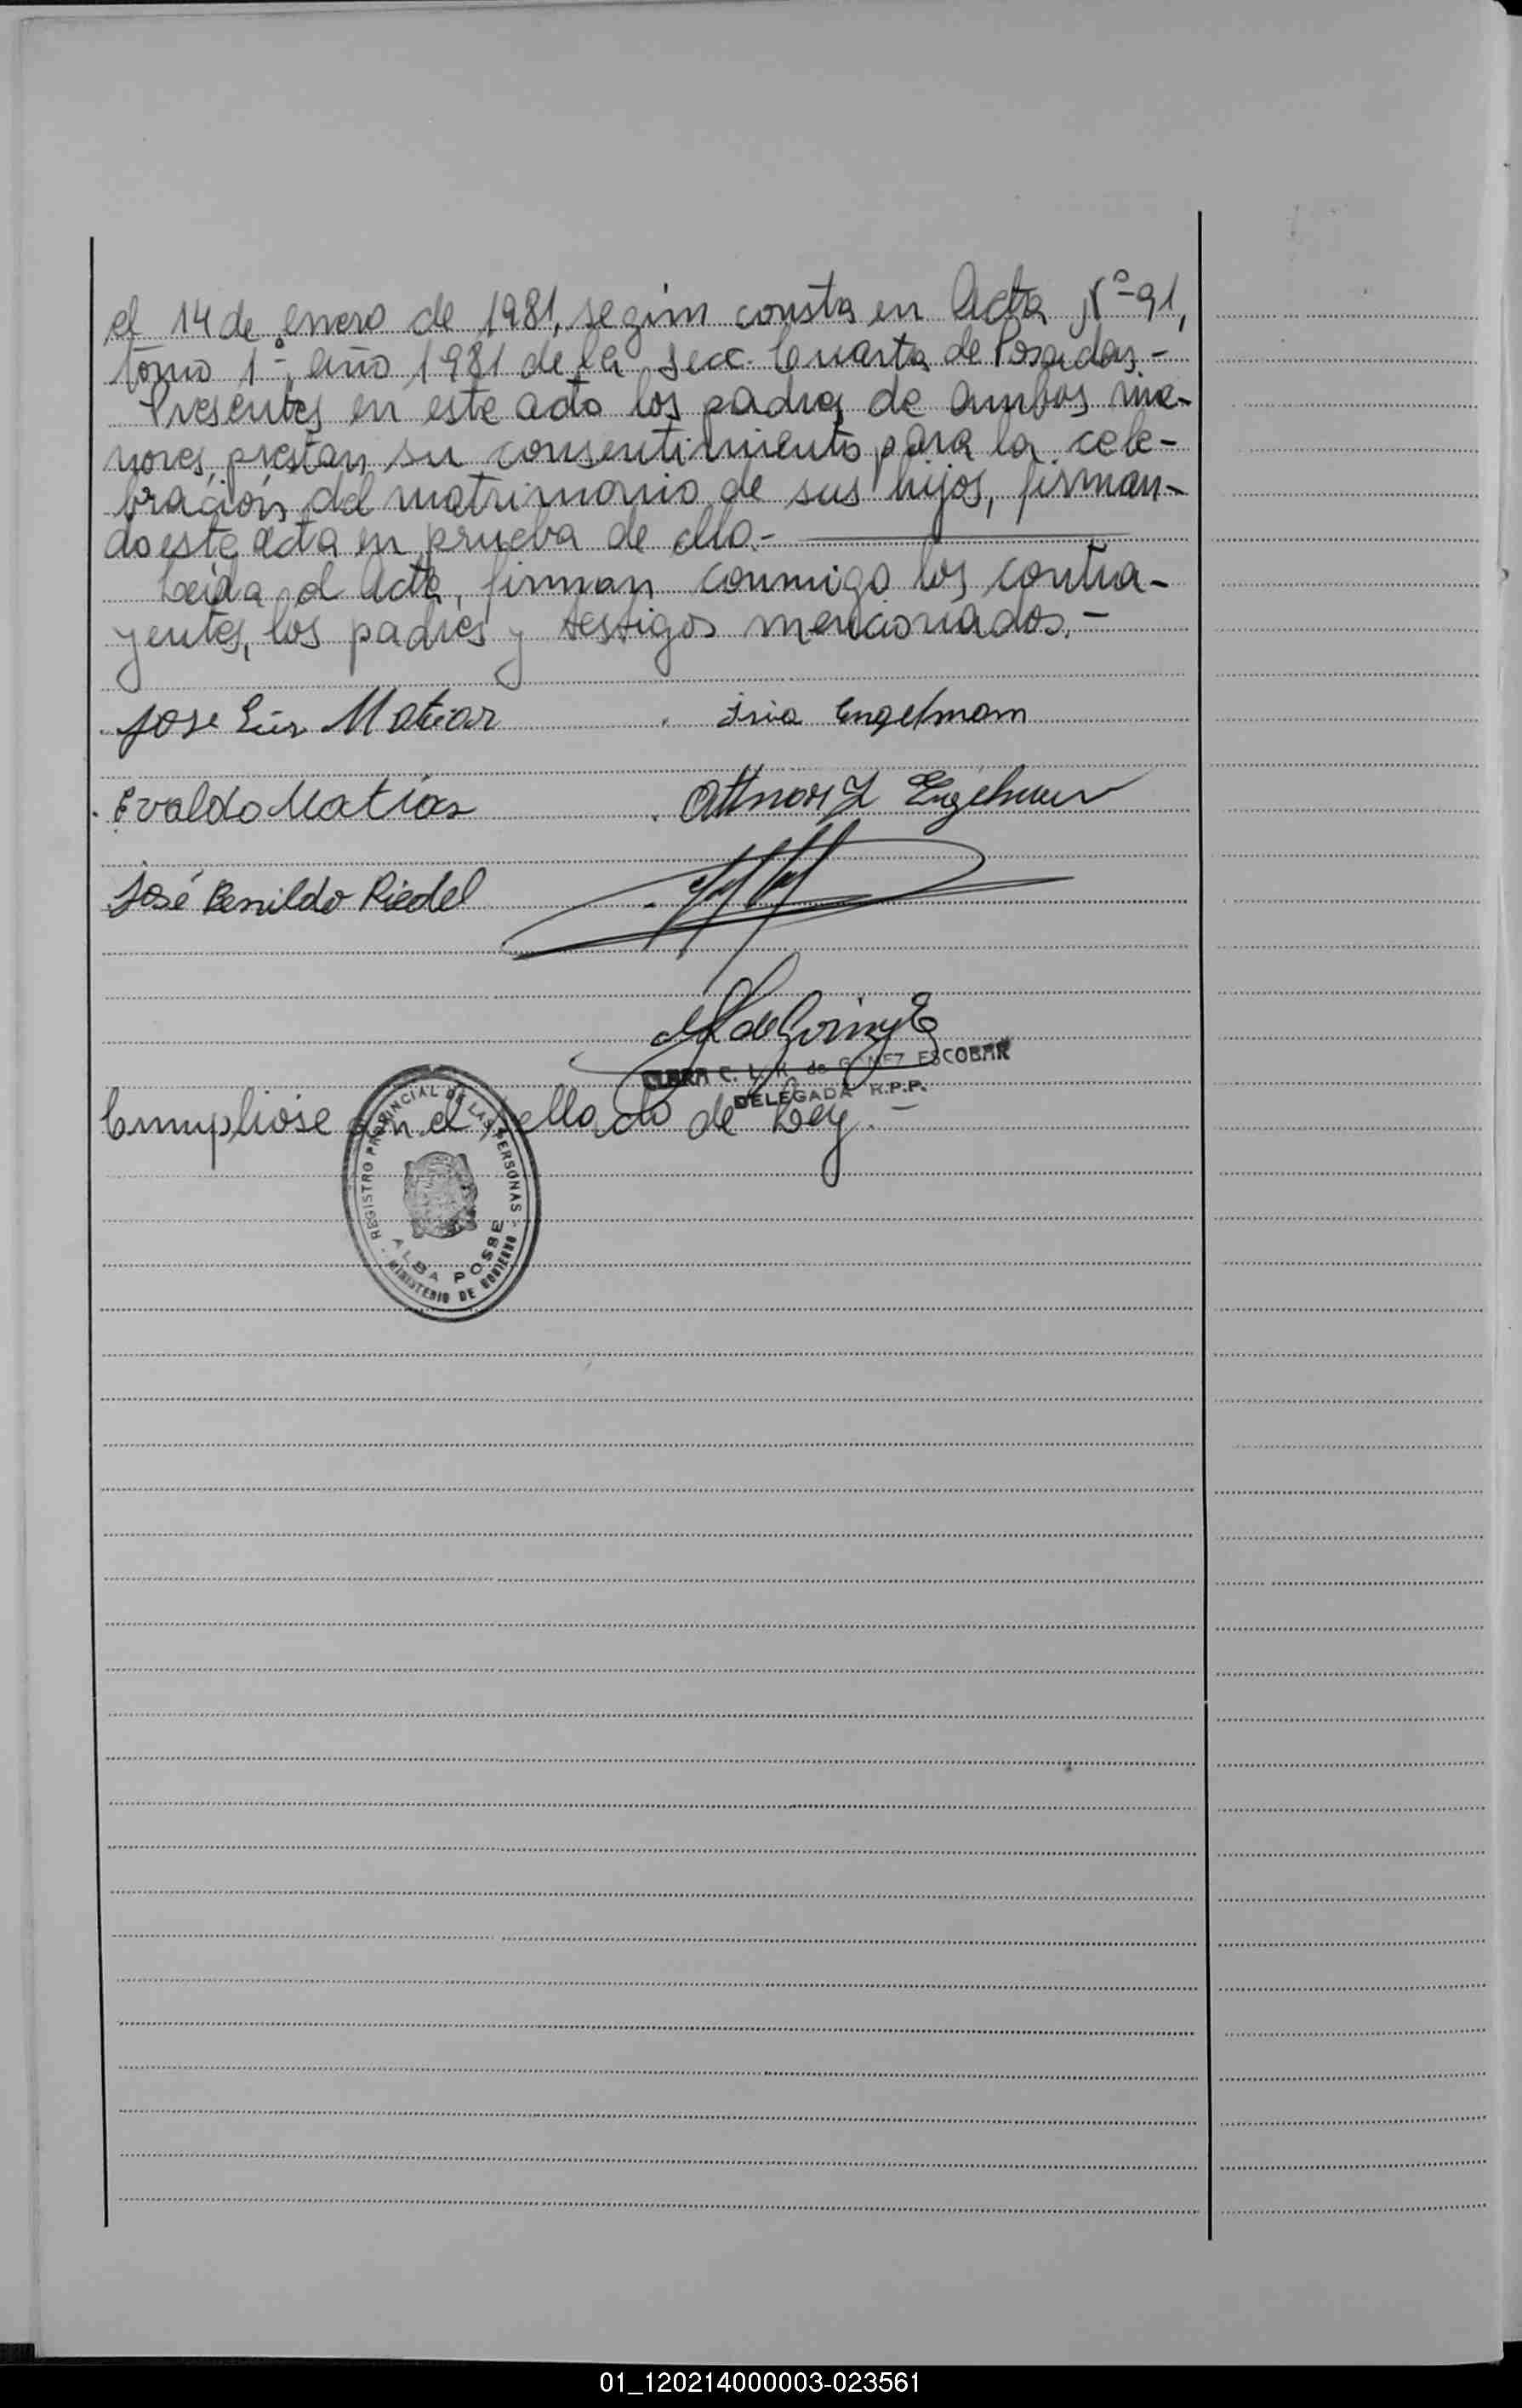 el 14 de enero de 1981, según consta en Acta Nº 91,
tomo 1º, año 1981 de la Secc. Cuarta de Posadas.-
Presentes en este acto los padres de ambos me-
nores, prestan su consentimiento para la cele-
bración del matrimonio de sus hijos, firman-
do este acta en prueba de ello.-
Leída el Acta, firman conmigo los contra-
yentes, los padres y testigos mencionados.-
Jose Luis Matias
Iria Engelmam
Evaldo Matias
Engelmann
José Benildo Riedel
CLARA C. de GOMEZ ESCOBAR
DELEGADA R.P.P.
Cumpliose con el sellado de Ley.-
REGISTRO PROVINCIAL DE LAS PERSONAS
ALBA POSSE
MINISTERIO DE GOBIERNO
01_120214000003-023561